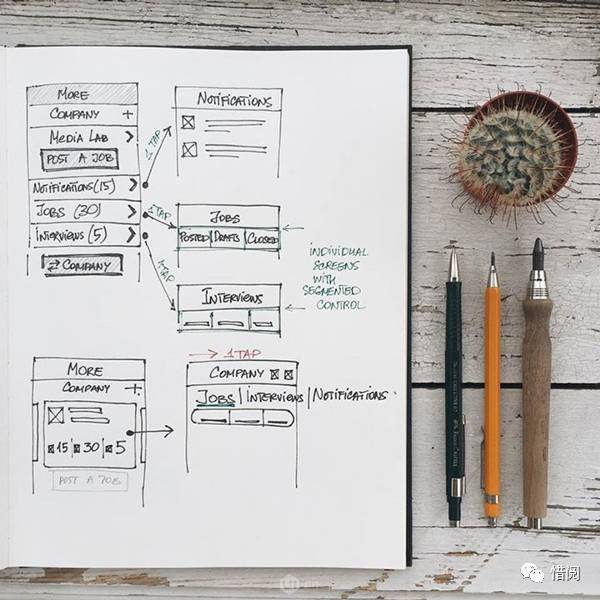 MORE
COMPANY +
MEDIA LAB
POST A JOB
NOTIFICATIONS (15)
JOBS (30)
INTERVIEWS (5)
COMPANY
1 TAP
NOTIFICATIONS
1 TAP
JOBS
POSTED DRAFTS CLOSED
1 TAP
INTERVIEWS
INDIVIDUAL
SCREENS
WITH
SEGMENTED
CONTROL
MORE
COMPANY +
15 30 5
POST A JOB
1 TAP
COMPANY
JOBS | INTERVIEWS | NOTIFICATIONS
惜阅